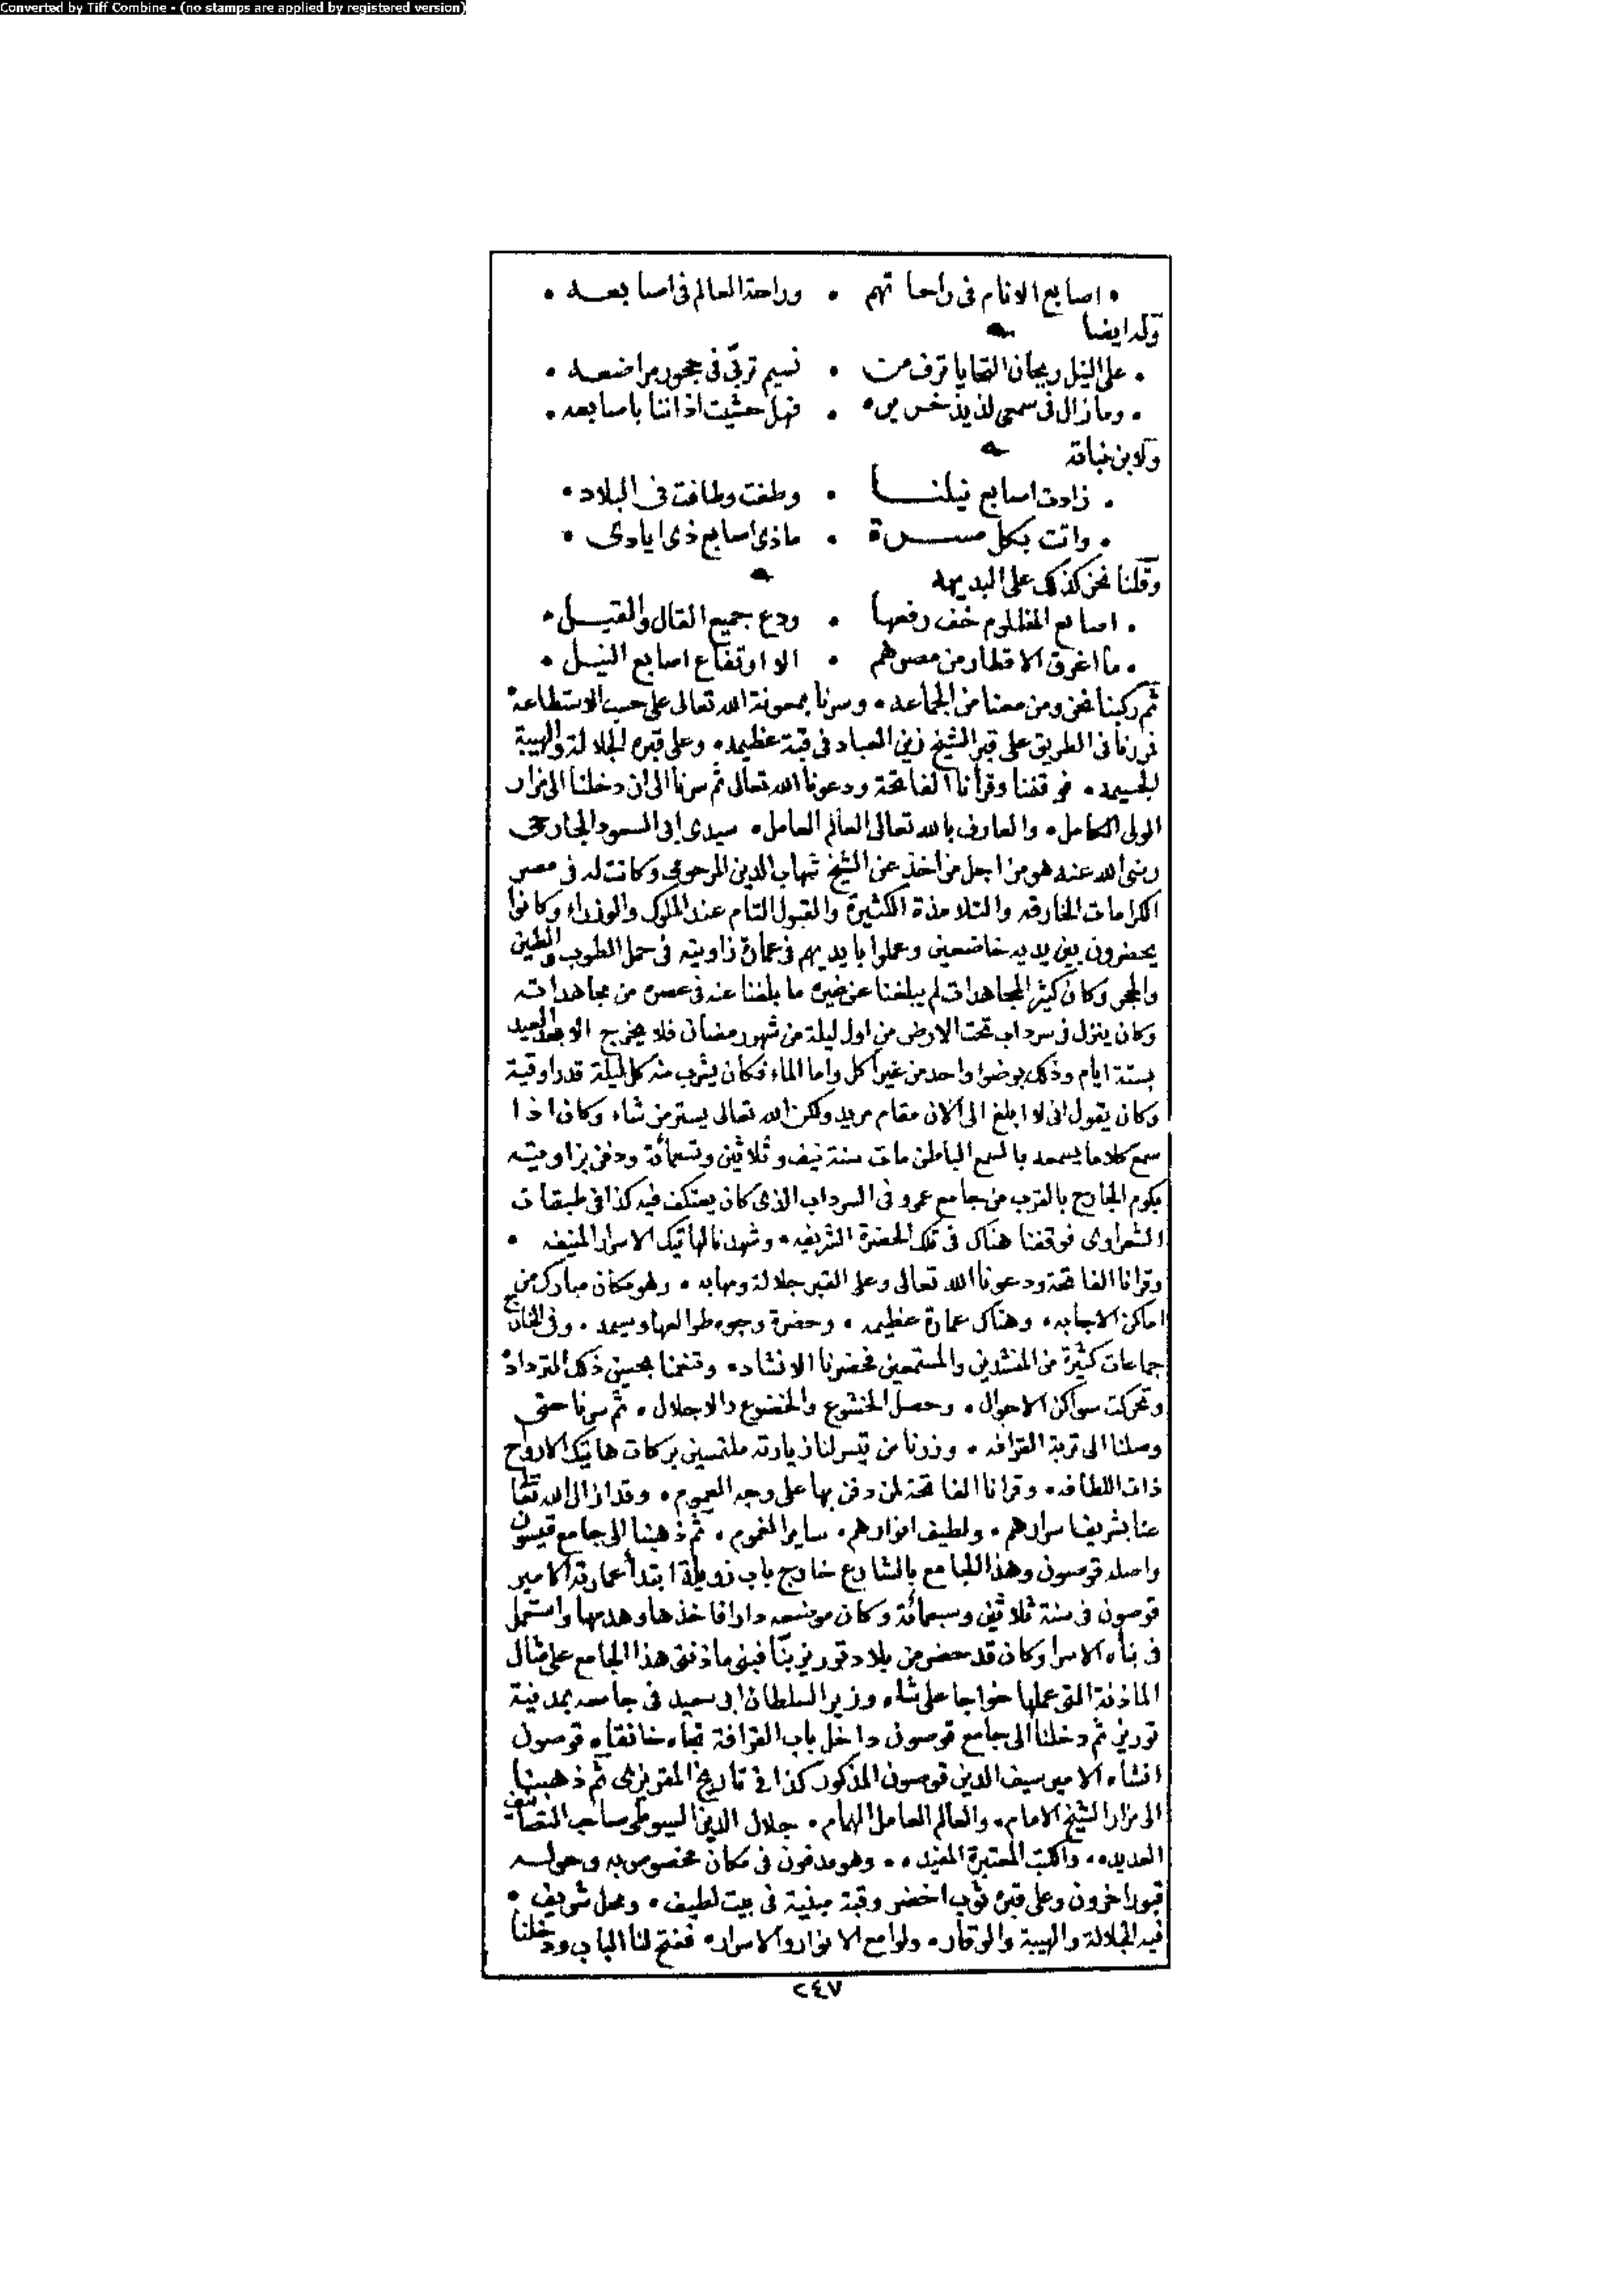 Converted by Tiff Combine - (no stamps are applied by registered version)
• اصابع الانام فى راحاتهم • وراحة العالم فى اصابعه •
وله ايضا
• على النيل ريحان التحايا ترف من • نسيم تربّى فى حجور مراضعه •
• وما زال فى سمعى لذيذ خريره • فهل حشيت اذاننا باصابعه •
ولابن نباتة
• زادت اصابع نيلنا • وطفت وطافت فى البلاد •
• واتت بكل مسرة • ماذى اصابع ذى ايادى •
وقلنا نحن كذلك على البديهه
• اصابع المظلوم خف رفعها • ودع جميع القال والقيل •
• ما اغرق الاقطار من مصرهم • الا ارتفاع اصابع النيل •
ثم ركبنا نحن ومن معنا من الجماعه • وسرنا بمعونة الله تعالى على حسب الاستطاعة
فمررنا فى الطريق على قبر الشيخ زين العباد فى قبة عظيمه • وعلى قبره الجلالة والهيبة
الجسيمه • فوقفنا وقرأنا الفاتحة ودعونا الله تعالى ثم سرنا الى ان دخلنا الى مزار
الولى الكامل • والعارف بالله تعالى العالم العامل • سيدى ابى السعود الجارحى
رضى الله عنه هو من اجل من اخذ عن الشيخ شهاب الدين المرحومى وكانت له فى مصر
الكرامات الخارقه والتلامذة الكثيرة والقبول التام عند الملوك والوزراء وكانوا
يحضرون بين يديه خاضعين وعملوا بايديهم فى عمارة زاويته فى حمل الطوب والطين
والحجر وكان كثير المجاهدات لم يبلغنا عن غيره ما بلغنا عنه فى عصره من مجاهداته
وكان ينزل فى سرداب تحت الارض من اول ليلة من شهر رمضان فلا يخرج الا بعد العيد
بستة ايام وذلك بوضوء واحد من غير اكل واما الماء فكان يشرب منه كل ليلة قدر اوقية
وكان يقول انى لا ابلغ الى الان مقام مريد ولكن الله تعالى يستر من شاء وكان اذا
سمع كلاما يسمعه بالسمع الباطن مات سنة نيف وثلاثين وتسعمائة ودفن بزاويته
بكوم الجارح بالقرب من جامع عمرو فى السرداب الذى كان يعتكف فيه كذا فى طبقات
الشعراوى فوقفنا هناك فى تلك الحضرة الشريفه • وشهدنا هاتيك الاسرار المنيفه •
وقرانا الفاتحة ودعونا الله تعالى وعلى القبر جلالة ومهابه • وهو مكان مبارك من
اماكن الاجابه • وهناك عمارة عظيمه • وحضرة وجوه طوالعها وسيمه • وفى الخارج
جماعات كثيرة من المنشدين والمستمعين فحضرنا الانشاد • وتنغمنا بحسن ذلك الترداد
وتحركت سواكن الاحوال • وحصل الخشوع والخضوع والاجلال • ثم سرنا حتى
وصلنا الى تربة القرافه • وزرنا من تيسر لنا زيارته ملتمسين بركات هاتيك الارواح
ذات اللطافه • وقرانا الفاتحة لمن دفن بها على وجه العموم • وقد ازال الله تعالى
عنا بشريف اسرارهم • ولطيف انوارهم • ساير الغموم • ثم ذهبنا الى جامع قيسون
واصله قوصون وهذا الجامع بالشارع خارج باب زويلة ابتدأ عمارته الامير
قوصون فى سنة ثلاثين وسبعمائة وكان موضعه دارا فاخذها وهدمها واستعمل
فى بنائه الاسرا وكان قد حضر من بلاد توريز بنّا فبنى ماذنتى هذا الجامع على مثال
الماذنة التى عملها خواجا على شاه وزير السلطان ابى سعيد فى جامعه بمدينة
توريز ثم دخلنا الى جامع قوصون داخل باب القرافة تجاه خانقاه قوصون
انشاه الامير سيف الدين قوصون المذكور كذا فى تاريخ المقريزى ثم ذهبنا
الى مزار الشيخ الامام • والعالم العامل الهمام • جلال الدين السيوطى صاحب التصانيف
العديده • والكتب المعتبرة المفيده • وهو مدفون فى مكان مخصوص به وحوله
قبور اخرون وعلى قبره ثوب اخضر وقبة مبنية فى بيت لطيف • ومحل شريف •
فيه الجلالة والهيبة والوقار • ولوامع الانوار والاسرار • ففتح لنا الباب ودخلنا
٢٤٧